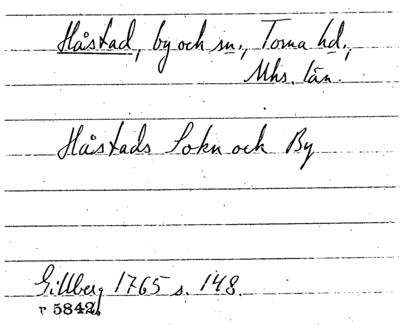 Håstad, by och sn., Torna hd.,
Mhs. län.
Håstads Sokn och By
Gillberg 1765 s. 148.
r 5842.